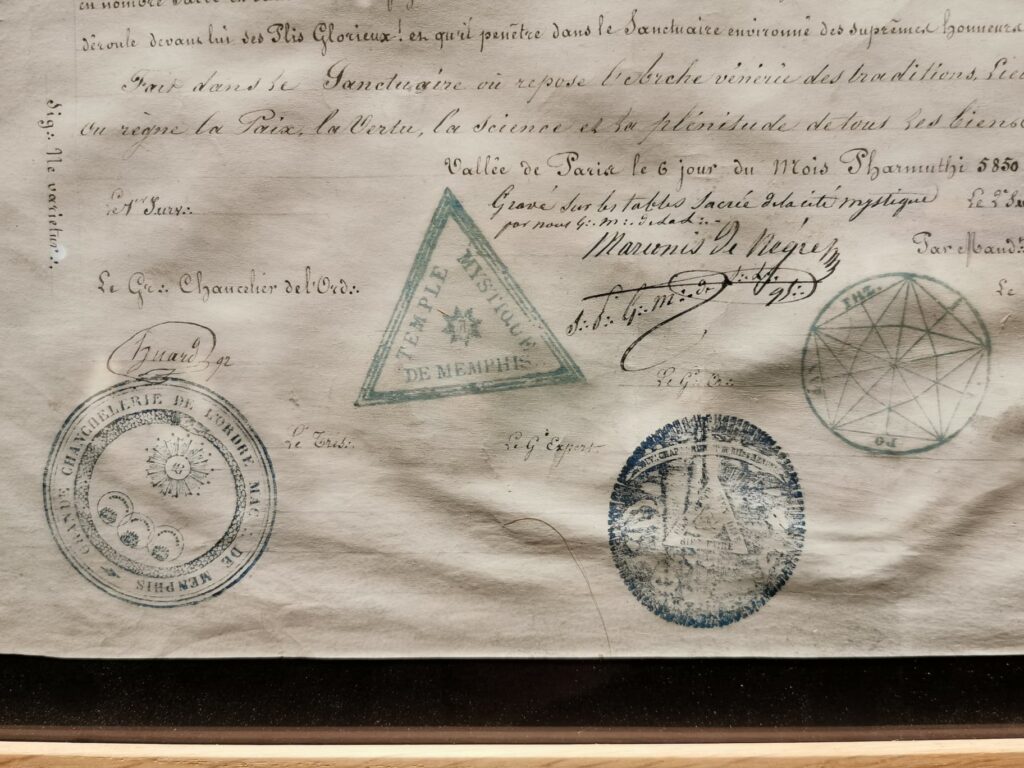 en nombre
déroule devant lui ses Plis Glorieux! et qu'il pénètre dans le Sanctuaire environné des suprêmes honneurs
Fait dans le Sanctuaire où repose l'Arche vénérée des traditions, Lieu
ou règne la Paix, la Vertu, la Science et la plénitude de tous les biens
Vallée de Paris le 6 jour du Mois Pharmuthi 5850
Sig∴ Ne varietur∴
Le 1er Surv∴
Gravé sur les tables Sacrée de la cité mystique
par nous G∴ M∴
Le 2e Su
Marconis De Nègre
Par Mand
Le Gr∴ Chancelier de l'Ord∴
Le
TEMPLE MYSTIQUE
DE MEMPHIS
Huard
Le Gd
Le Tres∴
Le Gd Expert
GRANDE CHANCELLERIE DE L'ORDRE MAÇ∴ DE MEMPHIS